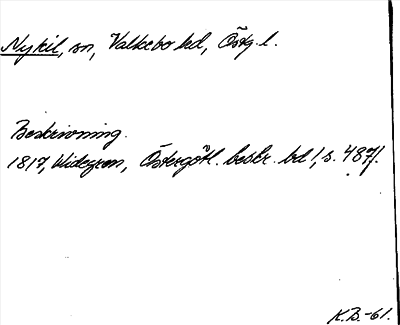 Nykil, sn, Valkebo hd, Östg. l.
Beskrivning.
1817, Widegren, Östergötl. beskr. bd 1, s. 487f.
K.B.-61.